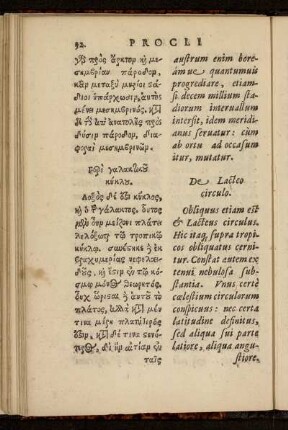 92. PROCLI
γὰρ πρὸς ἄρκτον ἢ με-
σημβρίαν πάροδον,
κᾂν μεταξὺ μυρίοι στά-
διοι ὑπάρχωσιν, αὐτὸς
μένει μεσημβρινός, κατὰ
δὲ τὴν ἀπ' ἀνατολῆς πρὸς
δύσιν πάροδον, διά-
φοροι μεσημβρινοί.
Περὶ γαλακτικοῦ
κύκλου.
Λοξὸς δέ ὅδι κύκλος,
καὶ ὁ τοῦ γάλακτος. οὗτος
μὲν οὖν μείζονι πλάτει
λελόξωται τοῦ τροπικοῦ
κύκλου. συνέστηκε δὲ ἐκ
βραχυμερίας νεφελοει-
δοῦς, καὶ ἔστιν ἐν τῷ κό-
σμῳ μόνος θεωρητός,
οὐχ ὥρισται δὲ αὐτοῦ τὸ
πλάτος, ἀλλὰ κατὰ μέν
τινα μέρη πλατύτερός
ὅδιν, κατὰ δέ τινα στενό-
τερος, δι' ἣν αἰτίαν ἐν
ταῖς
austrum enim bore-
amue quantumuis
progrediare, etiam-
si decem millium sta-
diorum interuallum
intersit, idem meridi-
anus seruatur: cùm
ab ortu ad occasum
itur, mutatur.
De Lacteo
circulo.
Obliquus etiam est
& Lacteus circulus.
Hic itaque supra tropi-
cos obliquatus cerni-
tur. Constat autem ex
tenui nebulosa sub-
stantia. Vnus certè
cœlestium circulorum
conspicuus: nec certa
latitudine definitus,
sed aliqua sui parte
latiore, aliqua angu-
stiore,